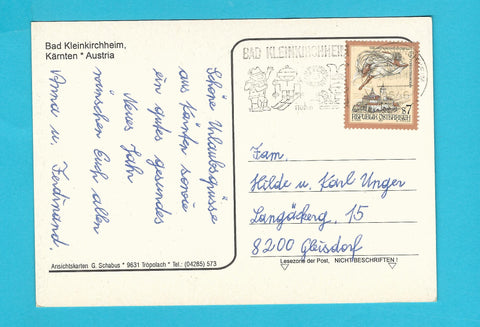 Bad Kleinkirchheim,
Kärnten * Austria
Schöne Urlaubsgrüsse
aus Kärnten sowie
ein gutes gesundes
Neues Jahr
wünschen Euch allen
Anna u. Ferdinand.
BAD KLEINKIRCHHEIM
REPUBLIK ÖSTERREICH
S7
Fam.
Hilde u. Karl Unger
Langäckerg. 15
8200 Gleisdorf
Lesezone der Post, NICHT BESCHRIFTEN!
Ansichtskarten G. Schabus * 9631 Tröpolach * Tel.: (04285) 573